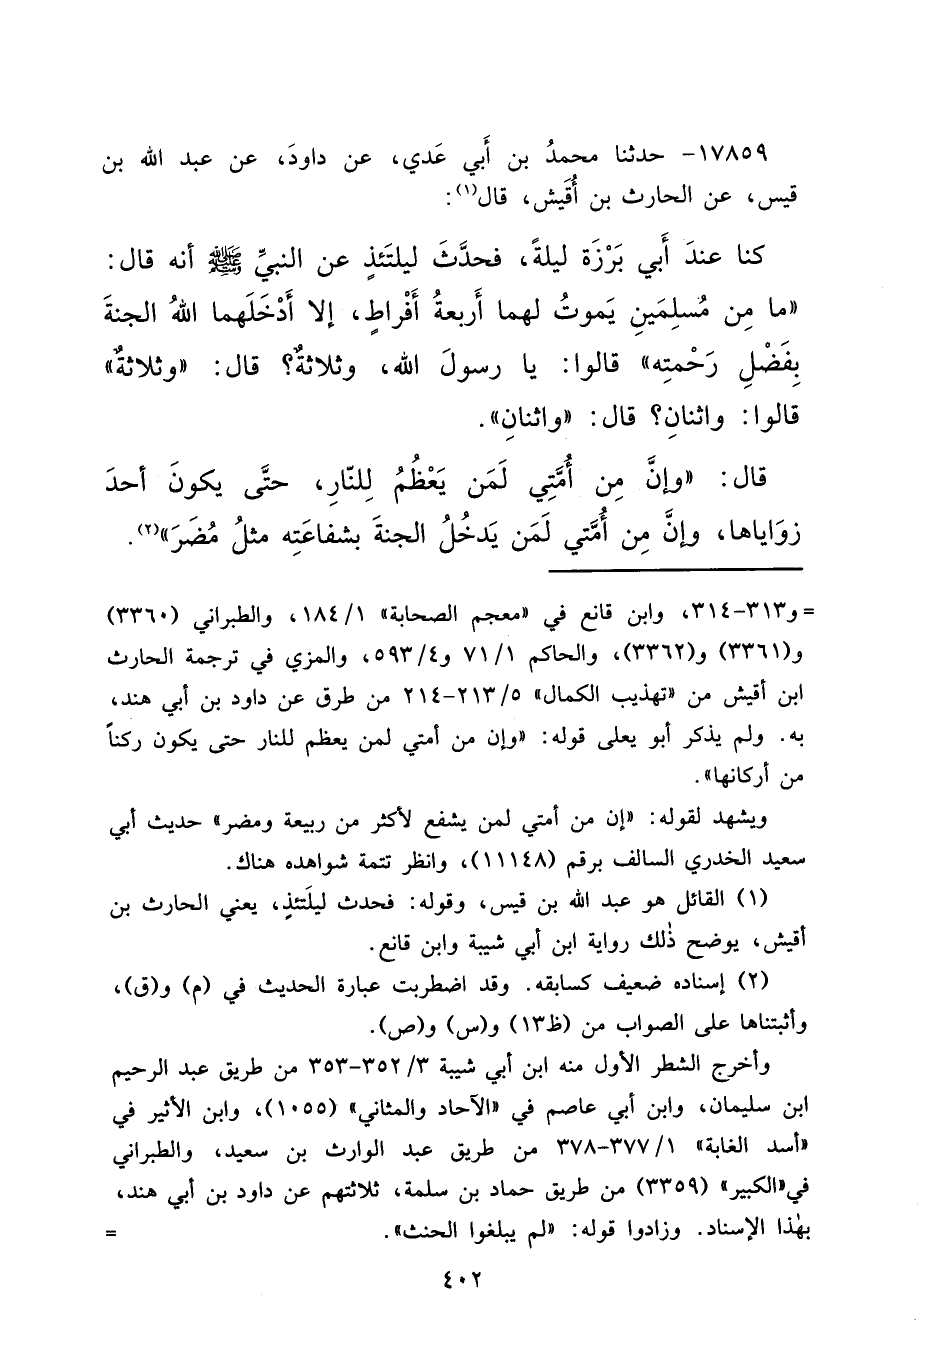 ١٧٨٥٩- حدثنا محمدُ بن أَبي عَدي، عن داودَ، عن عبد الله بن
قيس، عن الحارث بن أُقَيش، قال(١):
كنا عندَ أَبي بَرْزَة ليلةً، فحدَّثَ ليلتَئذٍ عن النبيِّ ﷺ أنه قال:
«ما مِن مُسلِمَينِ يَموتُ لهما أَربعةُ أَفْراطٍ، إلا أَدْخَلَهما اللهُ الجنةَ
بِفَضْلِ رَحْمتِه» قالوا: يا رسولَ الله، وثلاثةٌ؟ قال: «وثلاثةٌ»
قالوا: واثنانِ؟ قال: «واثنانِ».
قال: «وإنَّ مِن أُمَّتِي لَمَن يَعْظُمُ لِلنّارِ، حتَّى يكونَ أحدَ
زوَاياها، وإنَّ مِن أُمَّتي لَمَن يَدخُلُ الجنةَ بشفاعَتِه مثلُ مُضَرَ»(٢).
= و٣١٣-٣١٤، وابن قانع في «معجم الصحابة» ١/ ١٨٤، والطبراني (٣٣٦٠)
و(٣٣٦١) و(٣٣٦٢)، والحاكم ١/ ٧١ و٤/ ٥٩٣، والمزي في ترجمة الحارث
ابن أقيش من «تهذيب الكمال» ٥/ ٢١٣-٢١٤ من طرق عن داود بن أبي هند،
به. ولم يذكر أبو يعلى قوله: «وإن من أمتي لمن يعظم للنار حتى يكون ركناً
من أركانها».
ويشهد لقوله: «إن من أمتي لمن يشفع لأكثر من ربيعة ومضر» حديث أبي
سعيد الخدري السالف برقم (١١١٤٨)، وانظر تتمة شواهده هناك.
(١) القائل هو عبد الله بن قيس، وقوله: فحدث ليلَتئذٍ، يعني الحارث بن
أقيش، يوضح ذٰلك رواية ابن أبي شيبة وابن قانع.
(٢) إسناده ضعيف كسابقه. وقد اضطربت عبارة الحديث في (م) و(ق)،
وأثبتناها على الصواب من (ظ١٣) و(س) و(ص).
وأخرج الشطر الأول منه ابن أبي شيبة ٣/ ٣٥٢-٣٥٣ من طريق عبد الرحيم
ابن سليمان، وابن أبي عاصم في «الآحاد والمثاني» (١٠٥٥)، وابن الأثير في
«أسد الغابة» ١/ ٣٧٧-٣٧٨ من طريق عبد الوارث بن سعيد، والطبراني
في«الكبير» (٣٣٥٩) من طريق حماد بن سلمة، ثلاثتهم عن داود بن أبي هند،
بهٰذا الإسناد. وزادوا قوله: «لم يبلغوا الحنث». =
٤٠٢